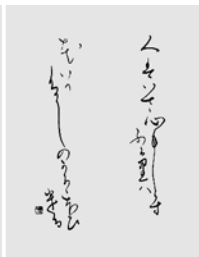 人はいさ心もしらす
ふる里は
花そ
むかしのかににほひ
ける